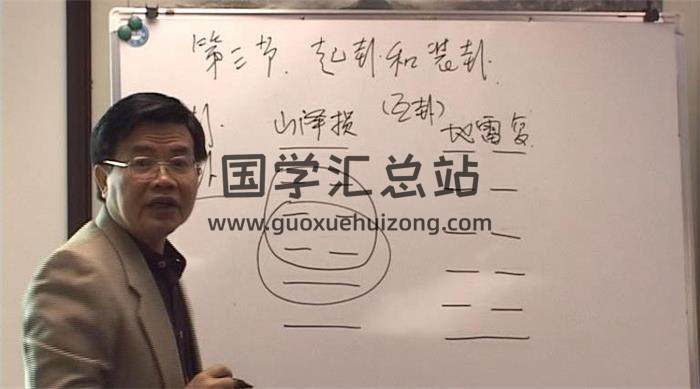 第三节、起卦和装卦
山泽损
(互卦)
地雷复
国学汇总站
www.guoxuehuizong.com